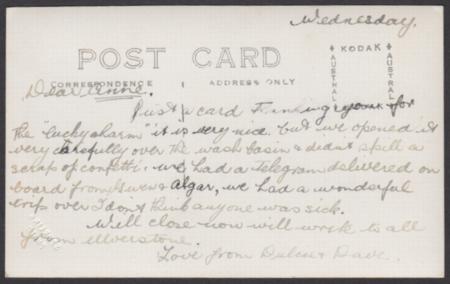 Wednesday.
POST CARD
KODAK
AUSTRAL
AUSTRAL
CORRESPONDENCE
ADDRESS ONLY
Dear Anne.
Just a card thanking you for
the "lucky charm" it is very nice. but we opened it
very carefully over the wash basin & didn't spill a
scrap of confetti. we had a telegram delivered on
board from & Algar, we had a wonderful
trip over I don't think anyone was sick.
Will close now will write to all
from Ulverstone.
Love from Dulcie & Dave.